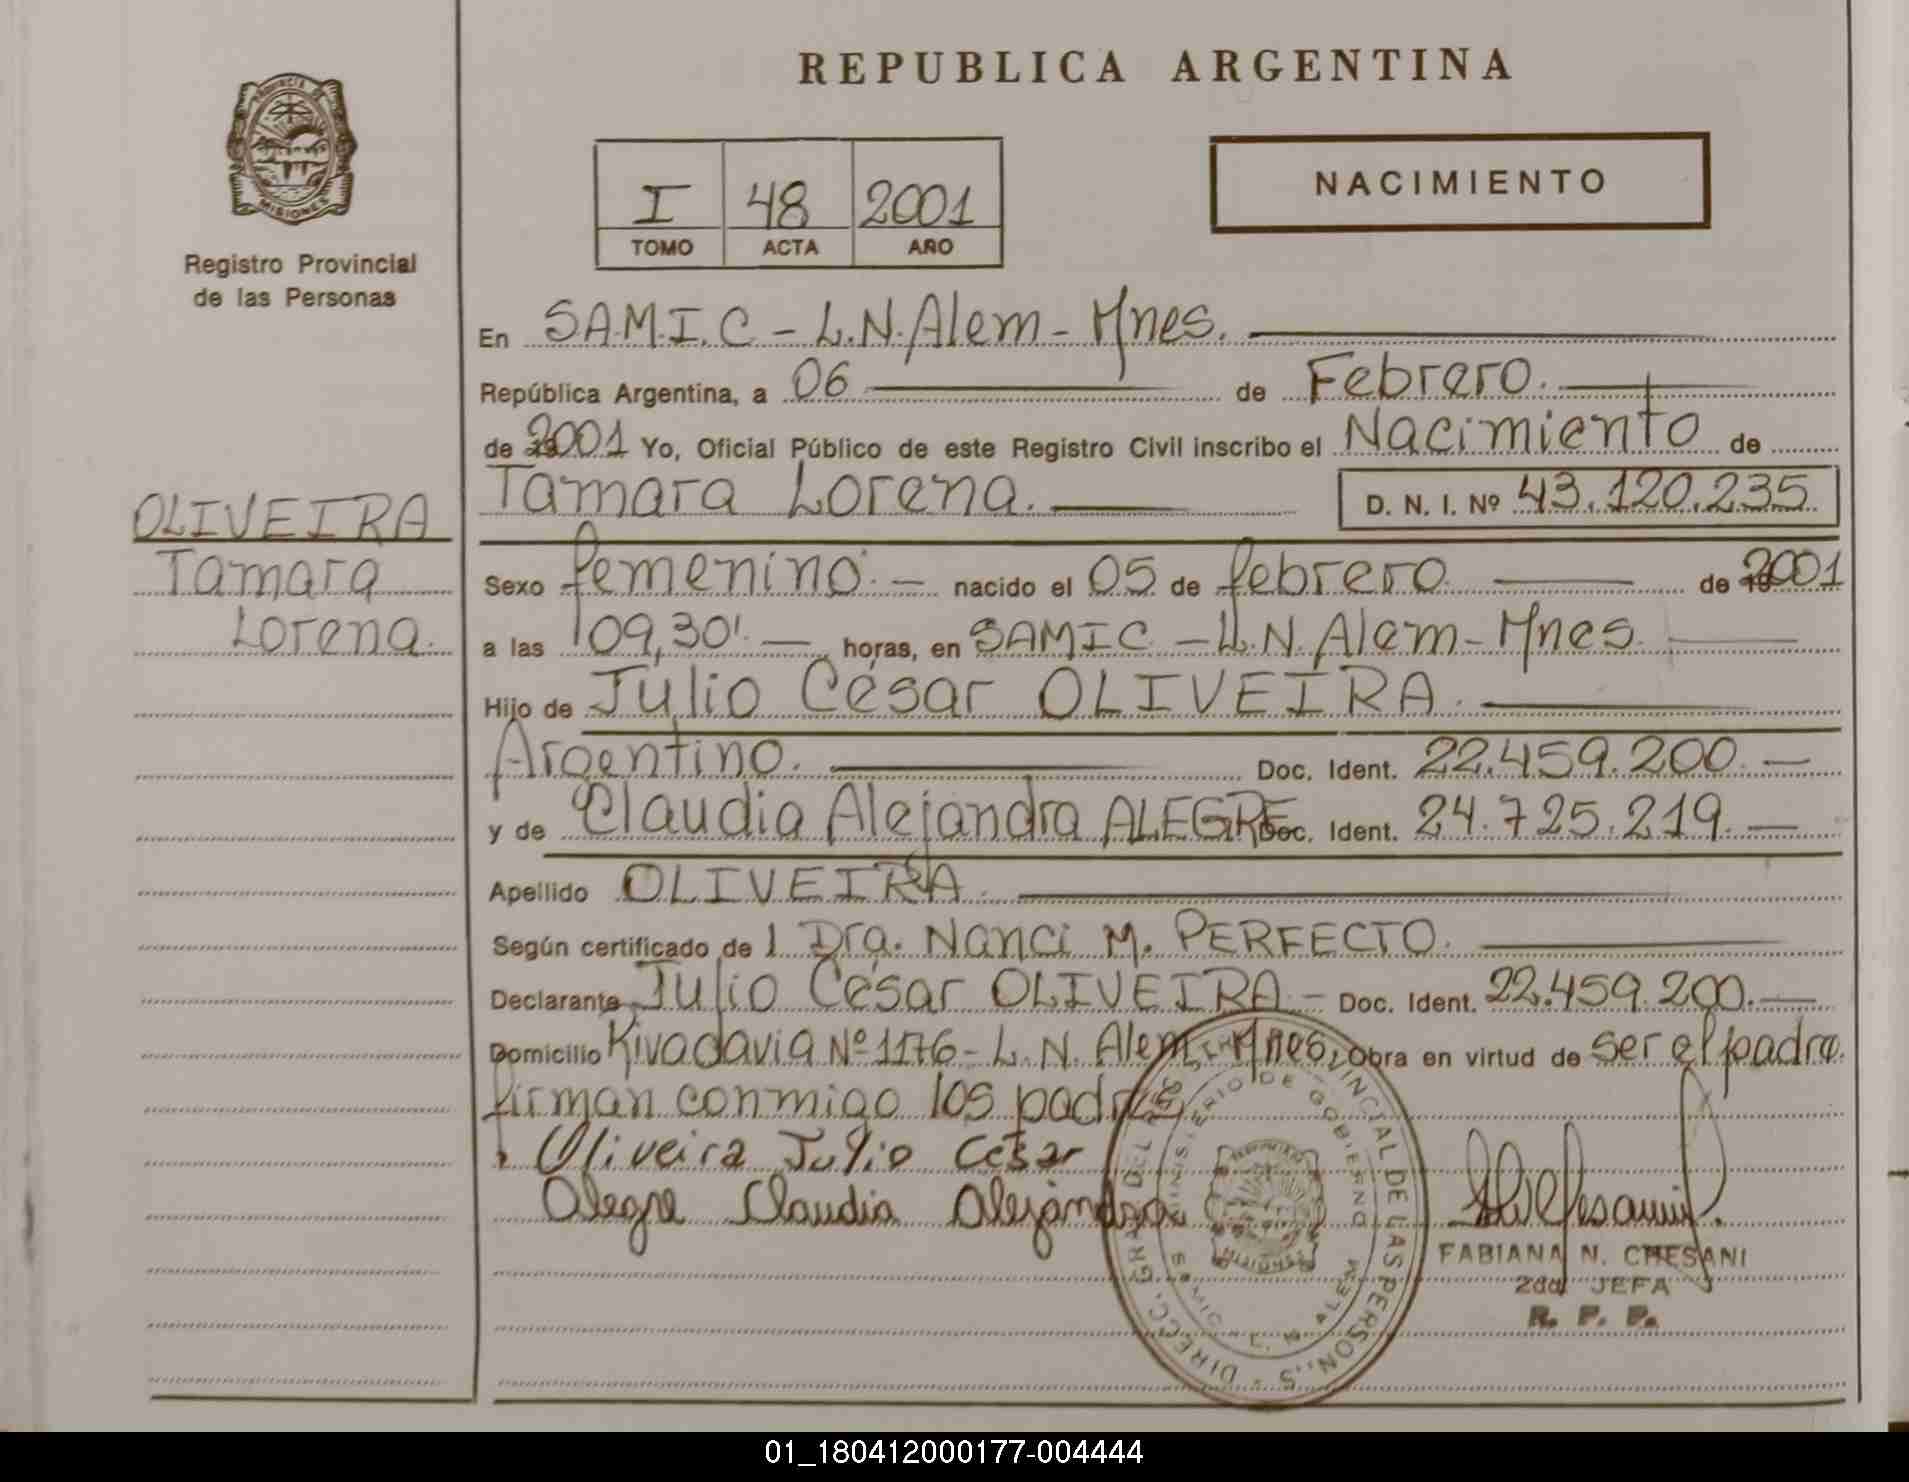 REPUBLICA ARGENTINA
PROVINCIA DE
MISIONES
Registro Provincial
de las Personas
I 48 2001
TOMO ACTA AÑO
NACIMIENTO
OLIVEIRA
Tamara
Lorena.
En S.A.M.I.C - L.N. Alem - Mnes.
República Argentina, a 06 de Febrero.
de 2001 Yo, Oficial Público de este Registro Civil inscribo el Nacimiento de
Tamara Lorena. D. N. I. Nº 43.120.235
Sexo femenino. - nacido el 05 de febrero de 2001
a las 09,30'. - horas, en SAMIC - L.N. Alem - Mnes.
Hijo de Julio César OLIVEIRA.
Argentino. Doc. Ident. 22.459.200. -
y de Claudia Alejandra ALEGRE Doc. Ident. 24.725.219. -
Apellido OLIVEIRA.
Según certificado de l Dra. Nanci M. PERFECTO.
Declarante Julio César OLIVEIRA - Doc. Ident. 22.459.200. -
Domicilio Rivadavia Nº 1176 - L. N. Alem, Mnes, Obra en virtud de ser el padre.
firman conmigo los padres
Oliveira Julio César
Alegre Claudia Alejandra
FABIANA N. CHESANI
2da JEFA
R. P. P.
MINISTERIO DE GOBIERNO
L. N. ALEM
MISIONES
01_180412000177-004444